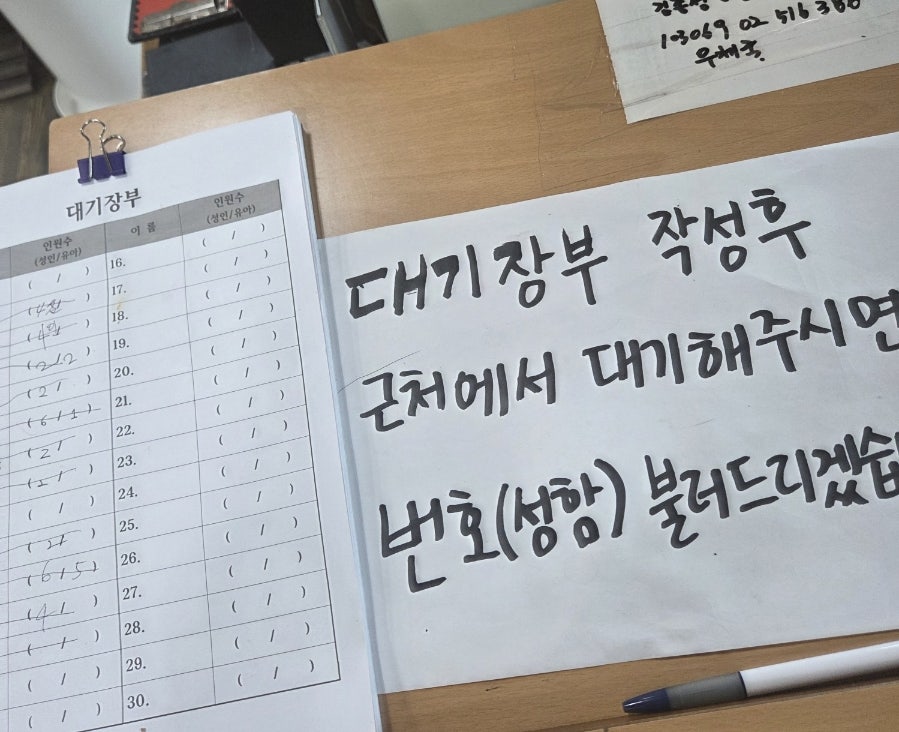 103069 02 516 3
우체국
대기장부
인원수
(성인/유아)
이 름
인원수
(성인/유아)
( / )
16.
( / )
17.
( / )
18.
( / )
(2/2)
19.
( / )
(2/ )
20.
( / )
(6/1)
21.
( / )
(2/ )
22.
( / )
(2/ )
23.
( / )
( / )
24.
( / )
(2/ )
25.
( / )
(6/5)
26.
( / )
(4/ )
27.
( / )
( / )
28.
( / )
( / )
29.
( / )
( / )
30.
( / )
대기장부 작성후
근처에서 대기해주시면
번호(성함) 불러드리겠습